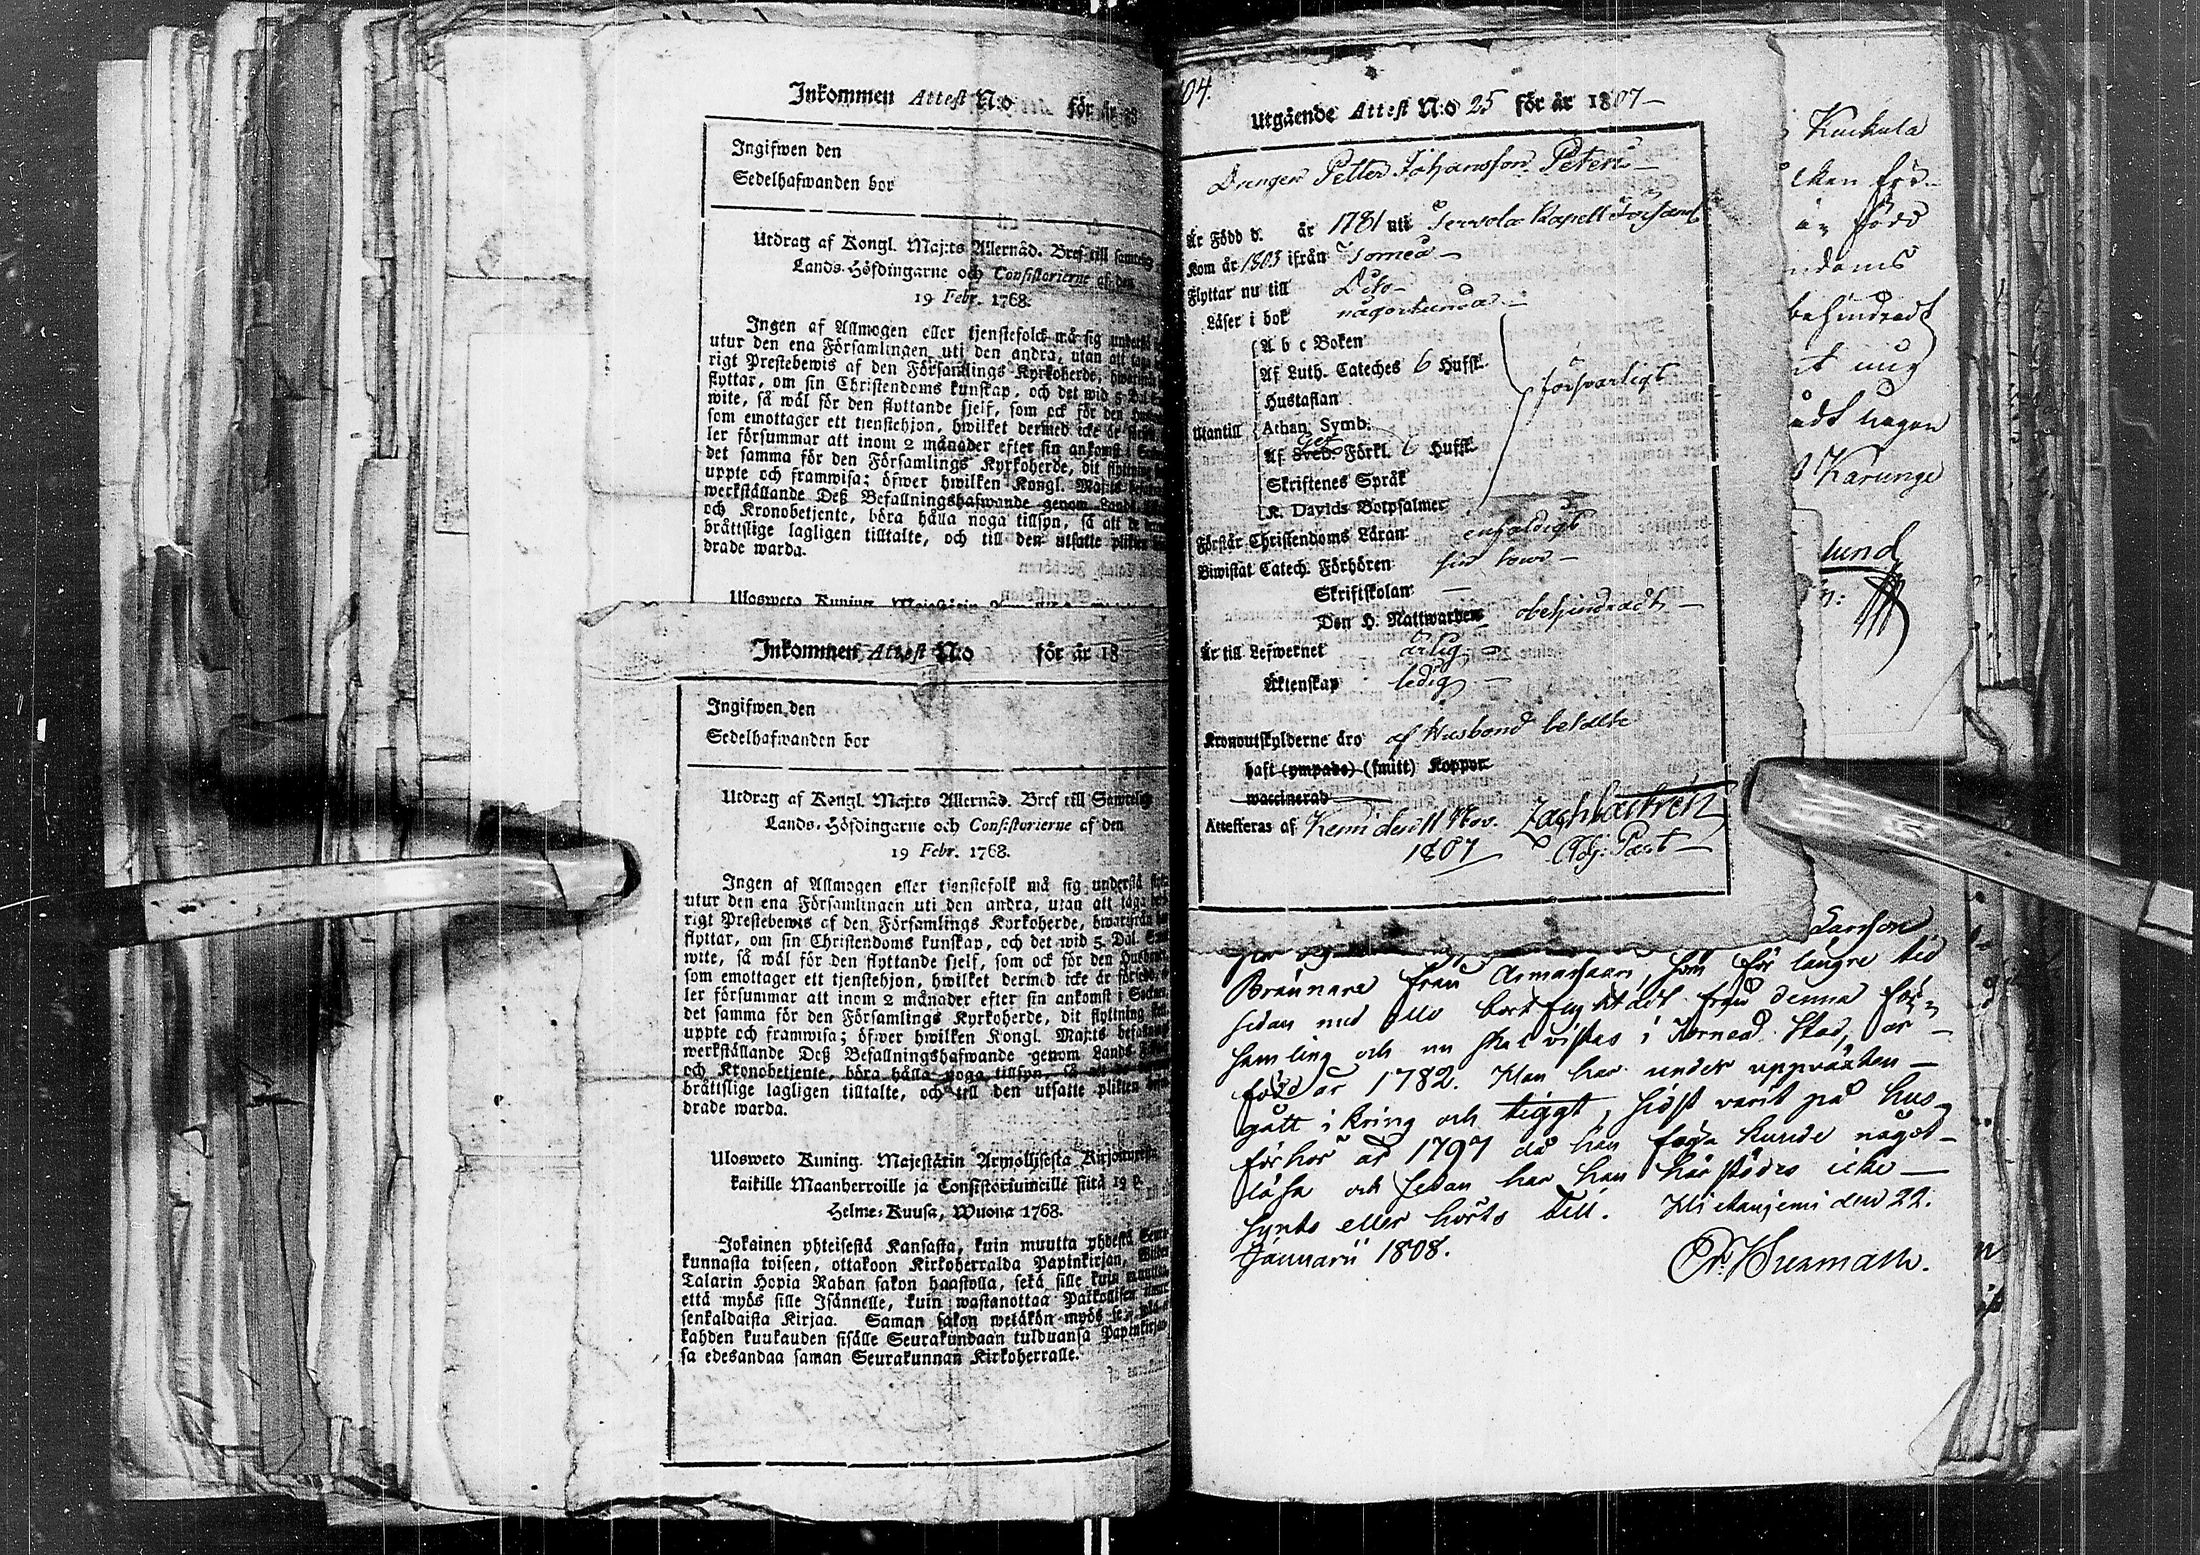 Inkommen Attest N:o för är 18
Ingifwen den
Sedelhafwanden bor
Utdrag af Kongl. Maj:ts Allernåd. Bref till samtelig
Lands-Höfdingarne och Consistorierne af den
19 Febr. 1768.
Ingen af Allmogen eller tjenstefolck må sig understå
utur den ena Församlingen uti den andra, utan att taga
rigt Prestebewis af den Församlings Kyrkoherde, hwarifrån
flyttar, om sin Christendoms kunskap, och det wid 5 Dal.
wite, så wäl för den flyttande sjelf, som ock för den
som emottager ett tjenstehjon, hwilket dermed icke är
ler försummar att inom 2 månader efter sin ankomst i
det samma för den Församlings Kyrkoherde, dit flyttning
uppte och framwisa; öfwer hwilken Kongl. Maj:ts
werkställande Deß Befallningshafwande genom Lands
och Kronobetjente, böra hålla noga tillsyn, så att de
bråttslige lagligen tilltalte, och till den utsatte plikten
drade warda.
Ulosweto Kuning. Majestätin
Inkommen Attest N:o för är 18
Ingifwen den
Sedelhafwanden bor
Utdrag af Kongl. Maj:ts Allernåd. Bref till Samtelig
Lands-Höfdingarne och Consistorierne af den
19 Febr. 1768.
Ingen af Allmogen eller tjenstefolk må sig understå
utur den ena Församlingen uti den andra, utan att taga
rigt Prestebewis af den Församlings Kyrkoherde, hwarifrån
flyttar, om sin Christendoms kunskap, och det wid 5. Dal.
wite, så wäl för den flyttande sjelf, som ock för den
som emottager ett tjenstehjon, hwilket dermed icke är
ler försummar att inom 2 månader efter sin ankomst i
det samma för den Församlings Kyrkoherde, dit flyttning
uppte och framwisa; öfwer hwilken Kongl. Maj:ts
werkställande Deß Befallningshafwande genom Lands
och Kronobetjente, böra hålla noga tillsyn, så att
bråttslige lagligen tilltalte, och till den utsatte plikten
drade warda.
Ulosweto Kuning. Majestätin Armollisesta Kirjoituxesta
kaikille Maanherroille ja Consistoriumeille siitä 19 p.
Helme-Kuusa, Wuona 1768.
Jokainen yhteisestä Kansasta, kuin muutta yhdestä
kunnasta toiseen, ottakoon Kirkoherralda Papinkirjan,
Talarin Hopia Rahan sakon haastolla, sekä sille kuin
että myös sille Isännelle, kuin wastanottaa
senkaldaista Kirjaa. Saman sakon wetäkön myös
kahden kuukauden sisälle Seurakundaan tulduansa Papinkirjan
sa edesandaa saman Seurakunnan Kirkoherralle.
104.
Utgående Attest N:o 25 för är 1807
Drengen Petter Johansson Peteri
Är Född d. år 1781 uti Tervola Kapell Församl
Kom år 1803 ifrån Torneå
Flyttar nu till Dito
Läser i bok någorlunda
A b c Boken
Af Luth. Cateches 6 Hufst.
Hustaflan
Utantill Athan. Symb.
Af Sveb. Förkl. 6 Hufst.
Skriftenes Språk
K. Davids Botpsalmer
försvarligt
Förstår Christendoms Läran enfaldigt
Biwistat Catech. Förhören sin tour
Skriftskolan
Den H. Nattwarden obehindradt
Är till Lefwernet ärlig
Äktenskap ledig
Kronoutskylderne äro af Husbond betalte
haft (ympade) (smitt) Koppor
waccinerad
Attesteras af Kemi den 11 Nov.
1807
Zach Castrén
Adj: Past
Kuckula
lken för
är född
ndoms
behindradt
Karunge
lund
Larsson
Brännare från Armassaari, som för längre tid
sedan med bortflyttadt från denna för-
samling och nu skal vistas i Torneå Stad, är
född år 1782. Han har under uppväxten
gått ikring och tiggt, sidst varit på hus-
förhör år 1797 då han föga kunde något
läsa och sedan har han härstädes icke
synts eller hörts till. Hietaniemi den 22.
Januarii 1808.